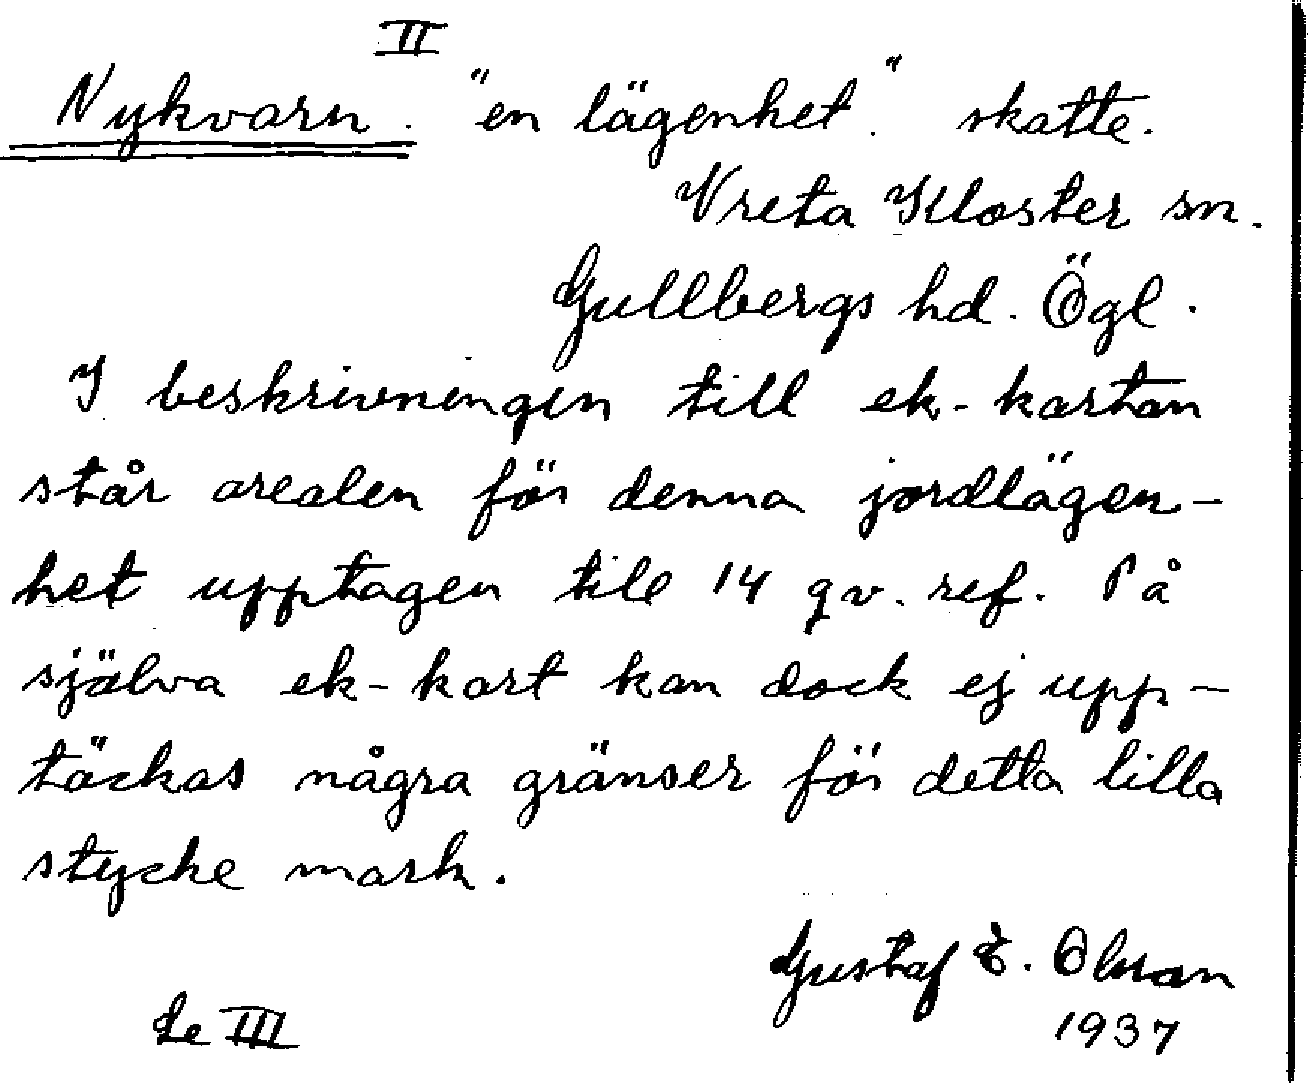 II
Nykvarn. "en lägenhet." skatte.
Vreta Kloster sn.
Gullbergs hd. Ögl.
I beskrivningen till ek-kartan
står arealen för denna jordlägen-
het upptagen till 14 qv. ref. På
själva ek-kart kan dock ej upp-
täckas några gränser för detta lilla
stycke mark.
Gustaf E. Olsson
1937
Se III